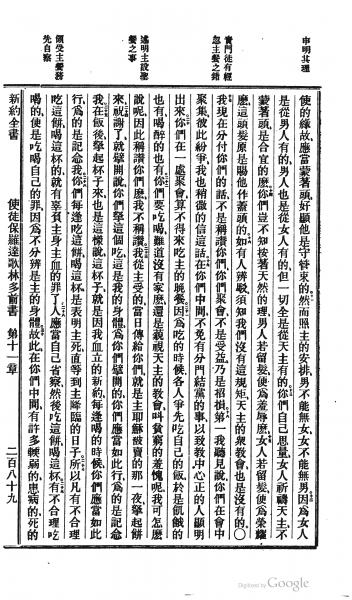 申明其理
責門徒有輕
忽主餐之錯
述明主設聖
餐之事
領受主餐務
先自察
使的緣故應當蒙著頭好顯他是守管束的然而照主的安排男不能無女女不能無男因爲女人
是從男人有的男人也是從女人有的但一切全是從天主有的你們自己思量女人祈禱天主不
蒙著頭是合宜的麽你們豈不知按著天然的理男人若留髮便爲羞辱麽女人若留髮便爲榮耀
麽這頭髮原是賜他作蓋頭的如有人辨駁須知我們沒有這規矩天主的衆教會也是沒有的○
我現在分付你們的話不是稱讚你們你們聚會不是受益乃是招損第一我聽見說你們在會中
聚集彼此紛爭我也稍微的信這話在你們中間不免有分門結黨的事以致教中心正的人顯明
出來你們在一處聚會算不得來吃主的晚餐因爲吃的時候各人爭先吃自己的飯於是飢餓的
也有喝醉的也有你們要吃喝難道沒有家麽還是藐視天主的教會叫貧窮的羞愧呢我可怎麽
說呢因此稱讚你們麽我不稱讚我從主受的當日傳給你們就是主耶穌被賣的那一夜拏起餅
來祝謝了就擘開說你們拏這個吃這是我的身體爲你們擘開的你們應當如此行爲的是記念
我在飯後拏起杯子來也是這樣說這杯子就是因我血立的新約每逢喝的時候你們應當如此
行爲的是記念我你們每逢吃這餅喝這杯是表明主死直等到主降臨的日子所以凡有不合理
吃這餅喝這杯的就有辜負主身主血的罪了人應當自己省察然後吃這餅喝這杯有不合理吃
喝的便是吃喝自己的罪因爲不分辨是主的身體故此在你們中間有許多輭弱的患病的死的
新約全書　使徒保羅達歌林多前書　第十一章　二百八十九
Digitized by Google